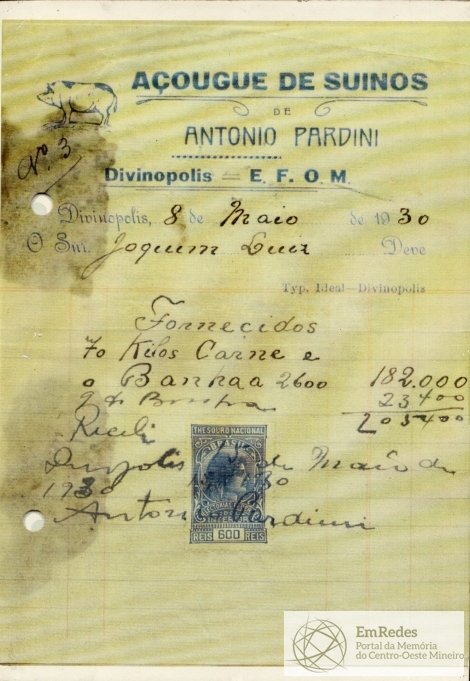 AÇOUGUE DE SUINOS
DE
ANTONIO PARDINI
Nº 3
Divinopolis = E. F. O. M.
Divinopolis, 8 de Maio de 1930
O Snr. Joquim Luiz Deve
Typ. Ideal—Divinopolis
Fornecidos
70 Kilos Carne e
o Banhaa 2600 182.000
23400
205400
Recibi
de Maio de
1930
Antonio Pardini
THESOURO NACIONAL
BRASIL
REIS 600 REIS
EmRedes
Portal da Memória
do Centro-Oeste Mineiro